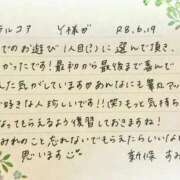 テルコア Y様が R8.6.19
でのお遊び1人目(?)に選んで頂き、
かったです!最初から最後まで喜んで
んた気がしていますかあんなにも睾丸アッ
で好きな人珍しいです!!(笑)もっと気持ち
なってもらえるよう復習しておきますね!
みれいのこと忘れないでもらえたらいいなぁ
思います
新條 すみ